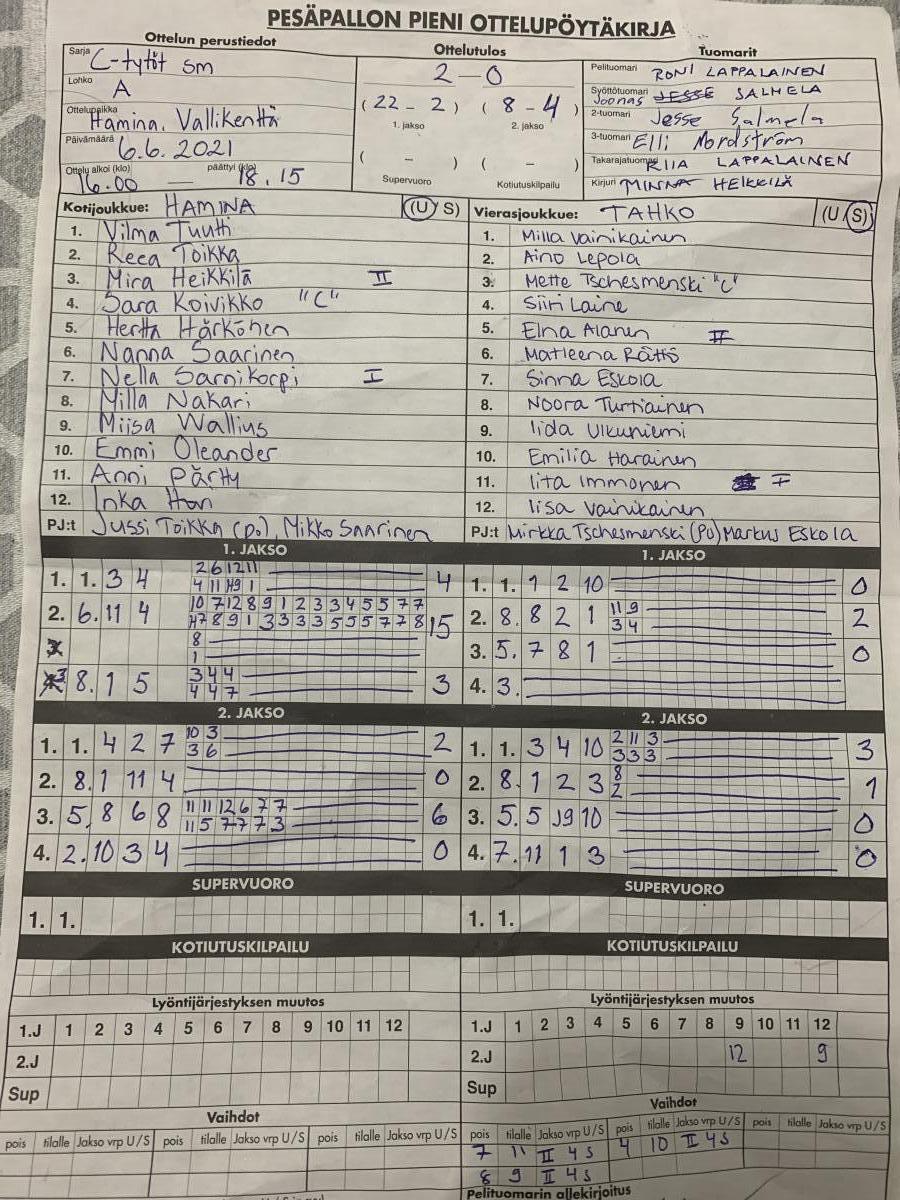 PESÄPALLON PIENI OTTELUPÖYTÄKIRJA
Ottelun perustiedot
Sarja C-tytöt SM
Lohko A
Ottelupaikka Hamina, Vallikenttä
Päivämäärä 6.6.2021
Ottelu alkoi (klo) päättyi (klo)
16.00 — 18.15
Ottelutulos
2 - 0
(22 - 2) (8 - 4)
1. jakso 2. jakso
( - ) ( - )
Supervuoro Kotiutuskilpailu
Tuomarit
Pelituomari RONI LAPPALAINEN
Syöttötuomari Joonas JESSE SALMELA
2-tuomari Jesse Salmela
3-tuomari Elli Nordström
Takarajatuomari RIIA LAPPALAINEN
Kirjuri MINNA HEIKKILÄ
Kotijoukkue: HAMINA (U S)
1. Vilma Tuuth
2. Reea Toikka
3. Mira Heikkilä II
4. Sara Koivikko "C"
5. Hertta Härkönen
6. Nanna Saarinen
7. Nella Sarnikorpi I
8. Milla Nakari
9. Miisa Wallius
10. Emmi Oleander
11. Anni Pärtty
12. Inka
PJ:t Jussi Toikka (po), Mikko Saarinen
Vierasjoukkue: TAHKO (U S)
1. Milla Vainikainen
2. Aino Lepola
3. Mette Tschesmenski "C"
4. Siiri Laine
5. Elna Alanen II
6. Matleena Rättö
7. Sinna Eskola
8. Noora Turtiainen
9. Iida Ulkuniemi
10. Emilia Harainen
11. Iita Immonen I
12. Iisa Vainikainen
PJ:t Mirkka Tschesmenski (Po) Markus Eskola
1. JAKSO
1. 1. 3 4 2 6 12 11 4
4 11 H9 1
2. 6. 11 4 10 7 12 8 9 1 2 3 3 4 5 5 7 7 15
H7 8 9 1 3 3 3 3 5 5 5 7 7 8
8
1
3 8. 1 5 3 4 4 3
4 4 7
1. JAKSO
1. 1. 1 2 10 0
2. 8. 8 2 1 11 9 2
3 4
3. 5. 7 8 1 0
4. 3.
2. JAKSO
1. 1. 4 2 7 10 3 2
3 6
2. 8. 1 11 4 0
3. 5. 8 6 8 11 11 12 6 7 7 6
11 5 7 7 7 3
4. 2. 10 3 4 0
2. JAKSO
1. 1. 3 4 10 2 11 3 3
3 3 3
2. 8. 1 2 3 8 1
2
3. 5. 5 J9 10 0
4. 7. 11 1 3 0
SUPERVUORO
1. 1.
SUPERVUORO
1. 1.
KOTIUTUSKILPAILU
KOTIUTUSKILPAILU
Lyöntijärjestyksen muutos
1.J 1 2 3 4 5 6 7 8 9 10 11 12
2.J
Sup
Lyöntijärjestyksen muutos
1.J 1 2 3 4 5 6 7 8 9 10 11 12
2.J 12 9
Sup
Vaihdot
pois tilalle Jakso vrp U/S pois tilalle Jakso vrp U/S pois tilalle Jakso vrp U/S
Vaihdot
pois tilalle Jakso vrp U/S pois tilalle Jakso vrp U/S pois tilalle Jakso vrp U/S
7 11 II 4 S 4 10 II 4 S
8 9 II 4 S
Pelituomarin allekirjoitus